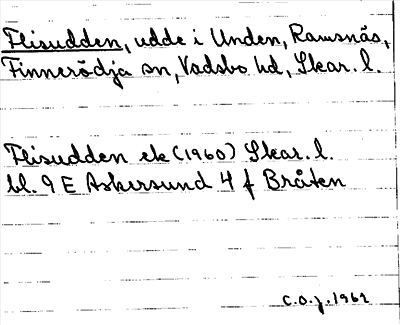 Flisudden, udde i Unden, Ramsnäs,
Finnerödja sn, Vadsbo hd, Skar. l.
Flisudden ek (1960) Skar. l.
bl. 9 E Askersund 4 f Bråten
C.O.J. 1962